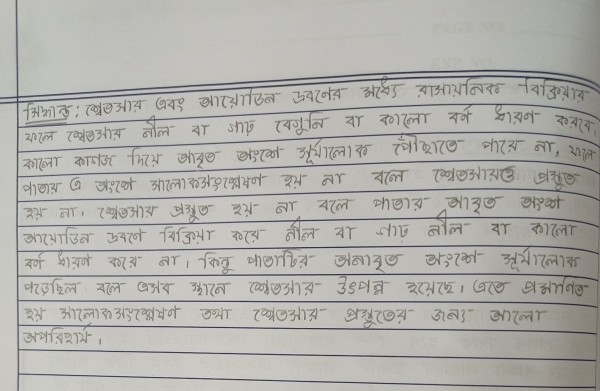 সিদ্ধান্ত : শ্বেতসার এবং আয়োডিন দ্রবনের মধ্যে রাসায়নিক বিক্রিয়ার
ফলে শ্বেতসার নীল বা গাঢ় বেগুনি বা কালো বর্ণ ধারণ করবে,
কালো কাগজ দিয়ে আবৃত অংশে সূর্যালোক পৌঁছাতে পারে না, ফলে
পাতার এ অংশে আলোকসংশ্লেষণ হয় না বলে শ্বেতসারও প্রস্তুত
হয় না। শ্বেতসার প্রস্তুত হয় না বলে পাতার আবৃত অংশ
আয়োডিন দ্রবণে বিক্রিয়া করে নীল বা গাঢ় নীল বা কালো
বর্ণ ধারণ করে না। কিন্তু পাতাটির অনাবৃত অংশে সূর্যালোক
পড়েছিল বলে এসব স্থানে শ্বেতসার উৎপন্ন হয়েছে। এতে প্রমাণিত
হয় আলোকসংশ্লেষণ তথা শ্বেতসার প্রস্তুতের জন্য আলো
অপরিহার্য।